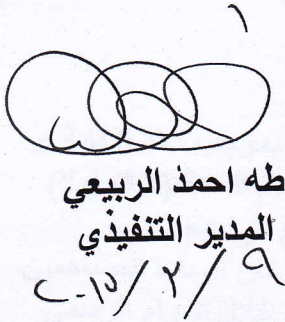 ١
طه احمد الربيعي
المدير التنفيذي
٢٠١٥/٢/٩